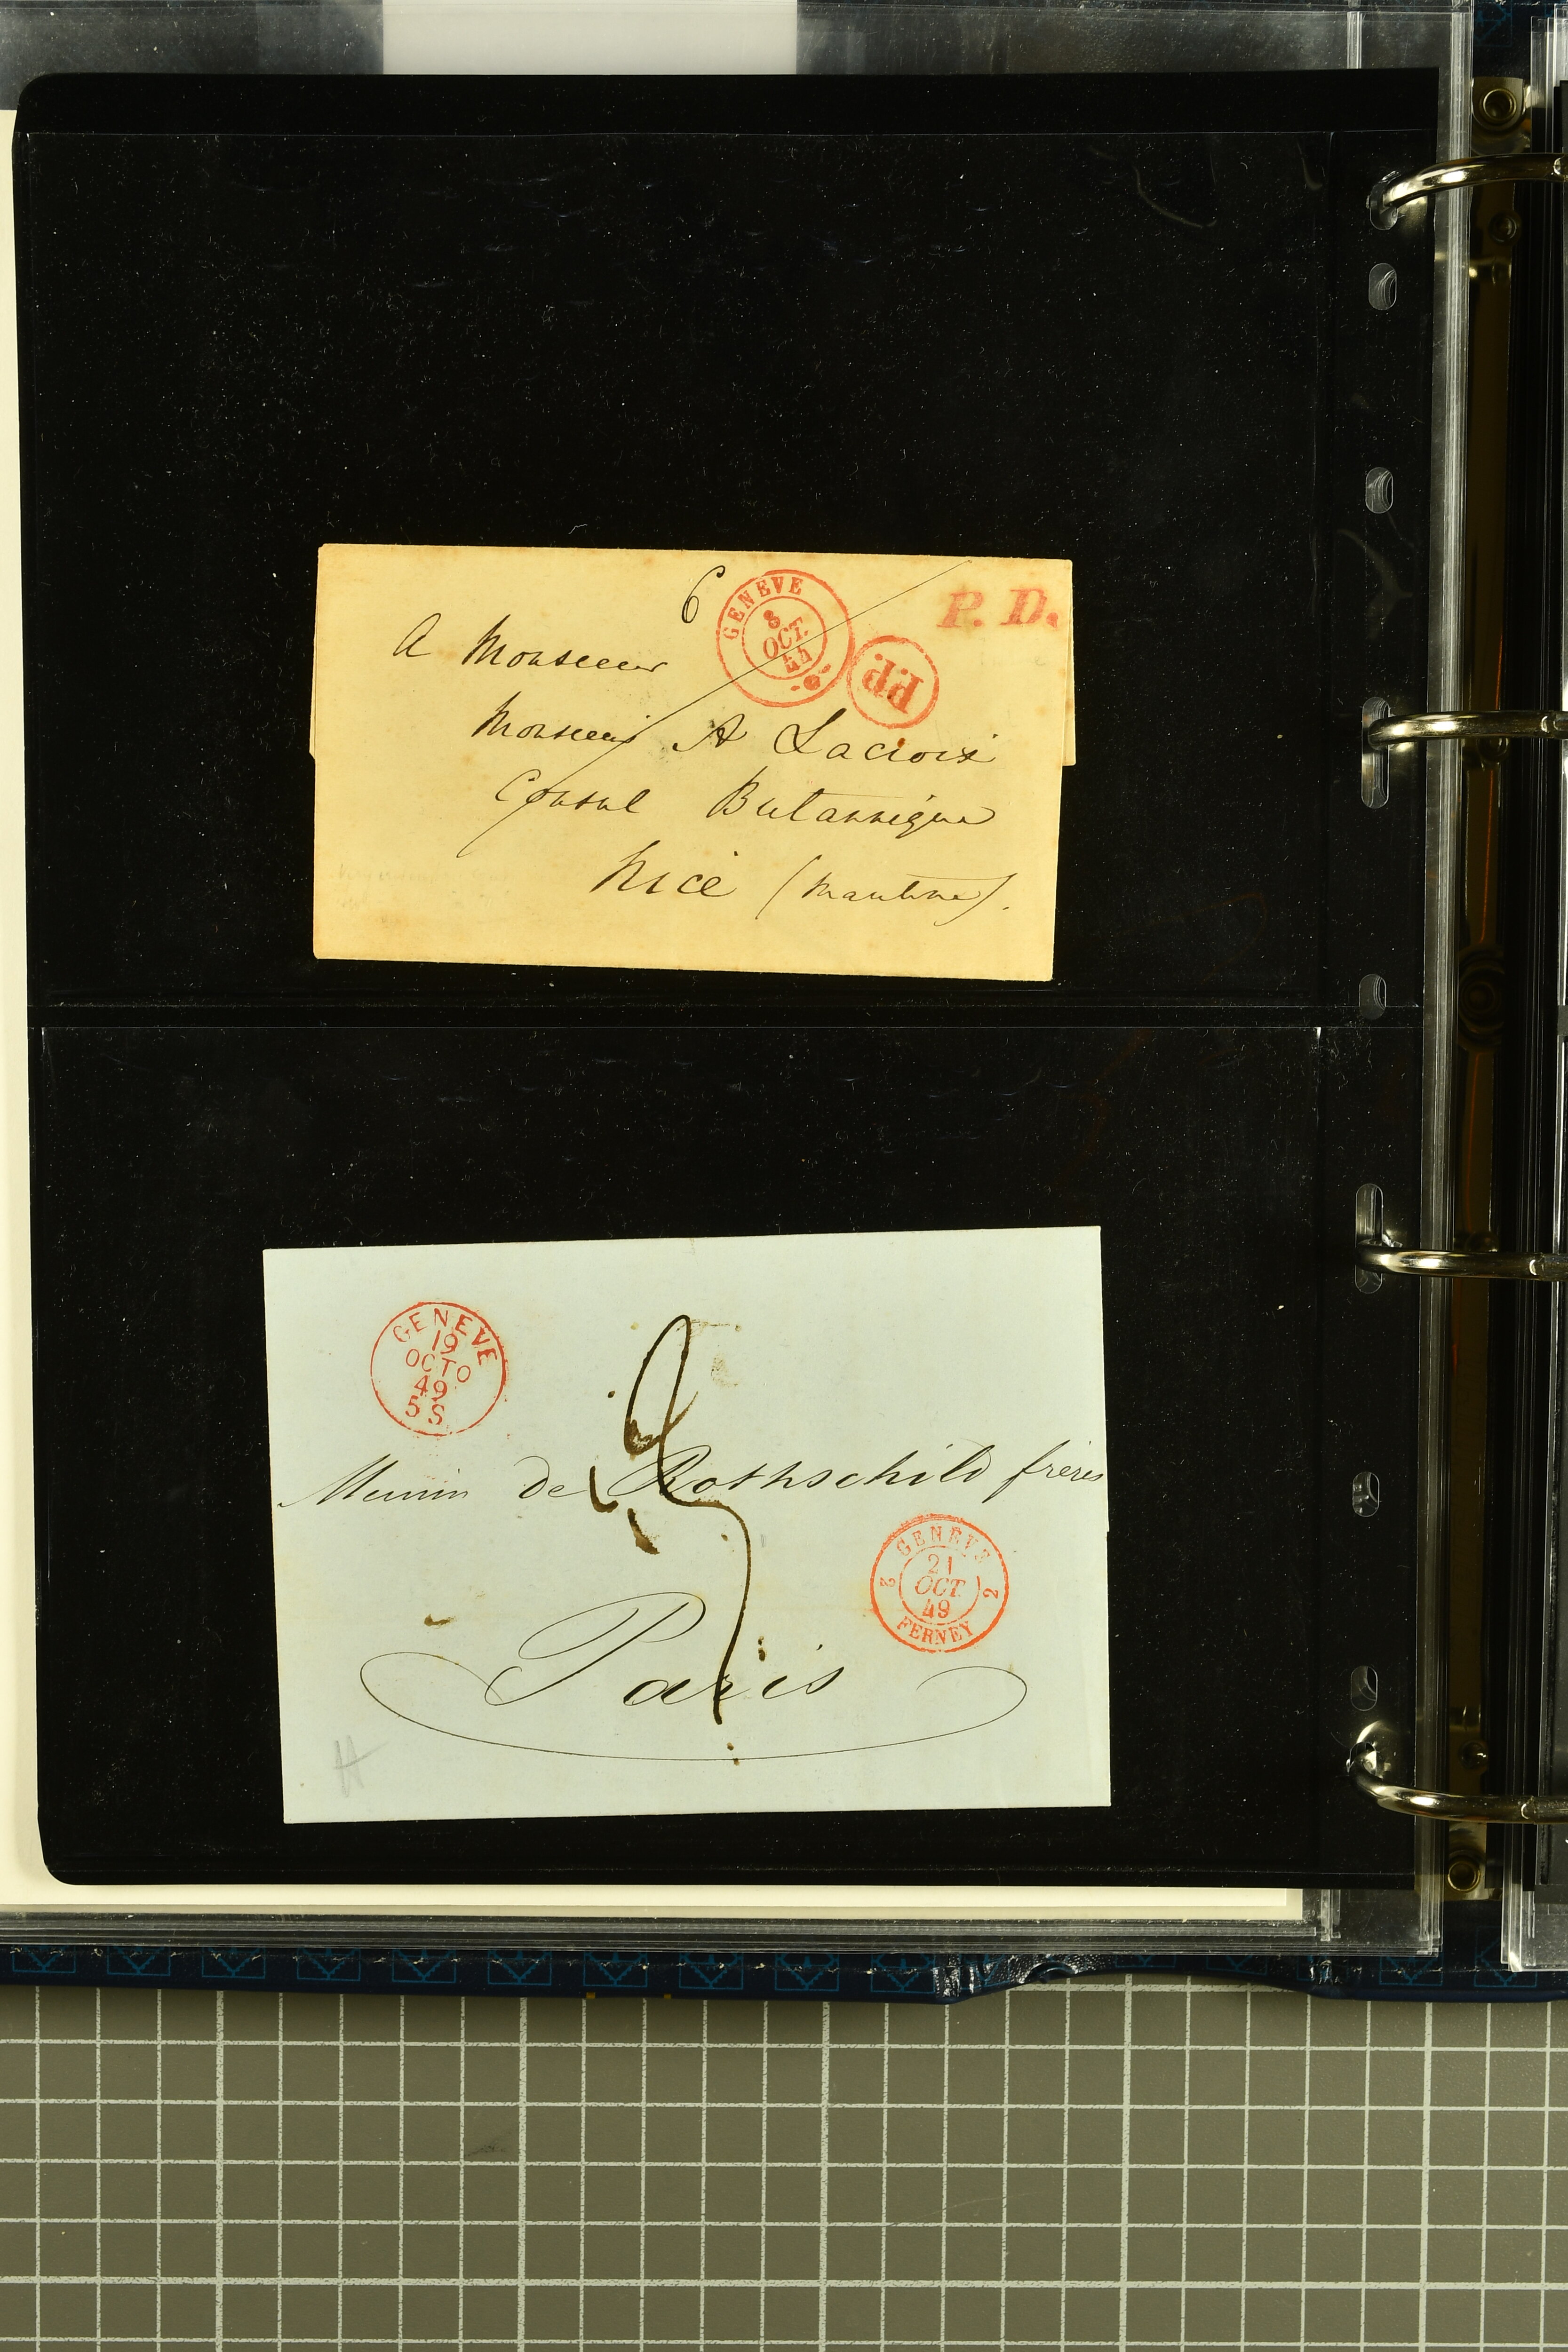 6
GENEVE
8
OCT.
44
P. D.
P.P.
A Monsieur
Monsieur A Lacroix
Consul Britannique
Nice (Maritime).
GENEVE
19
OCTO
49
5 S
de Rothschild frères
GENEVE
2 21 2
OCT.
49
FERNEY
Paris